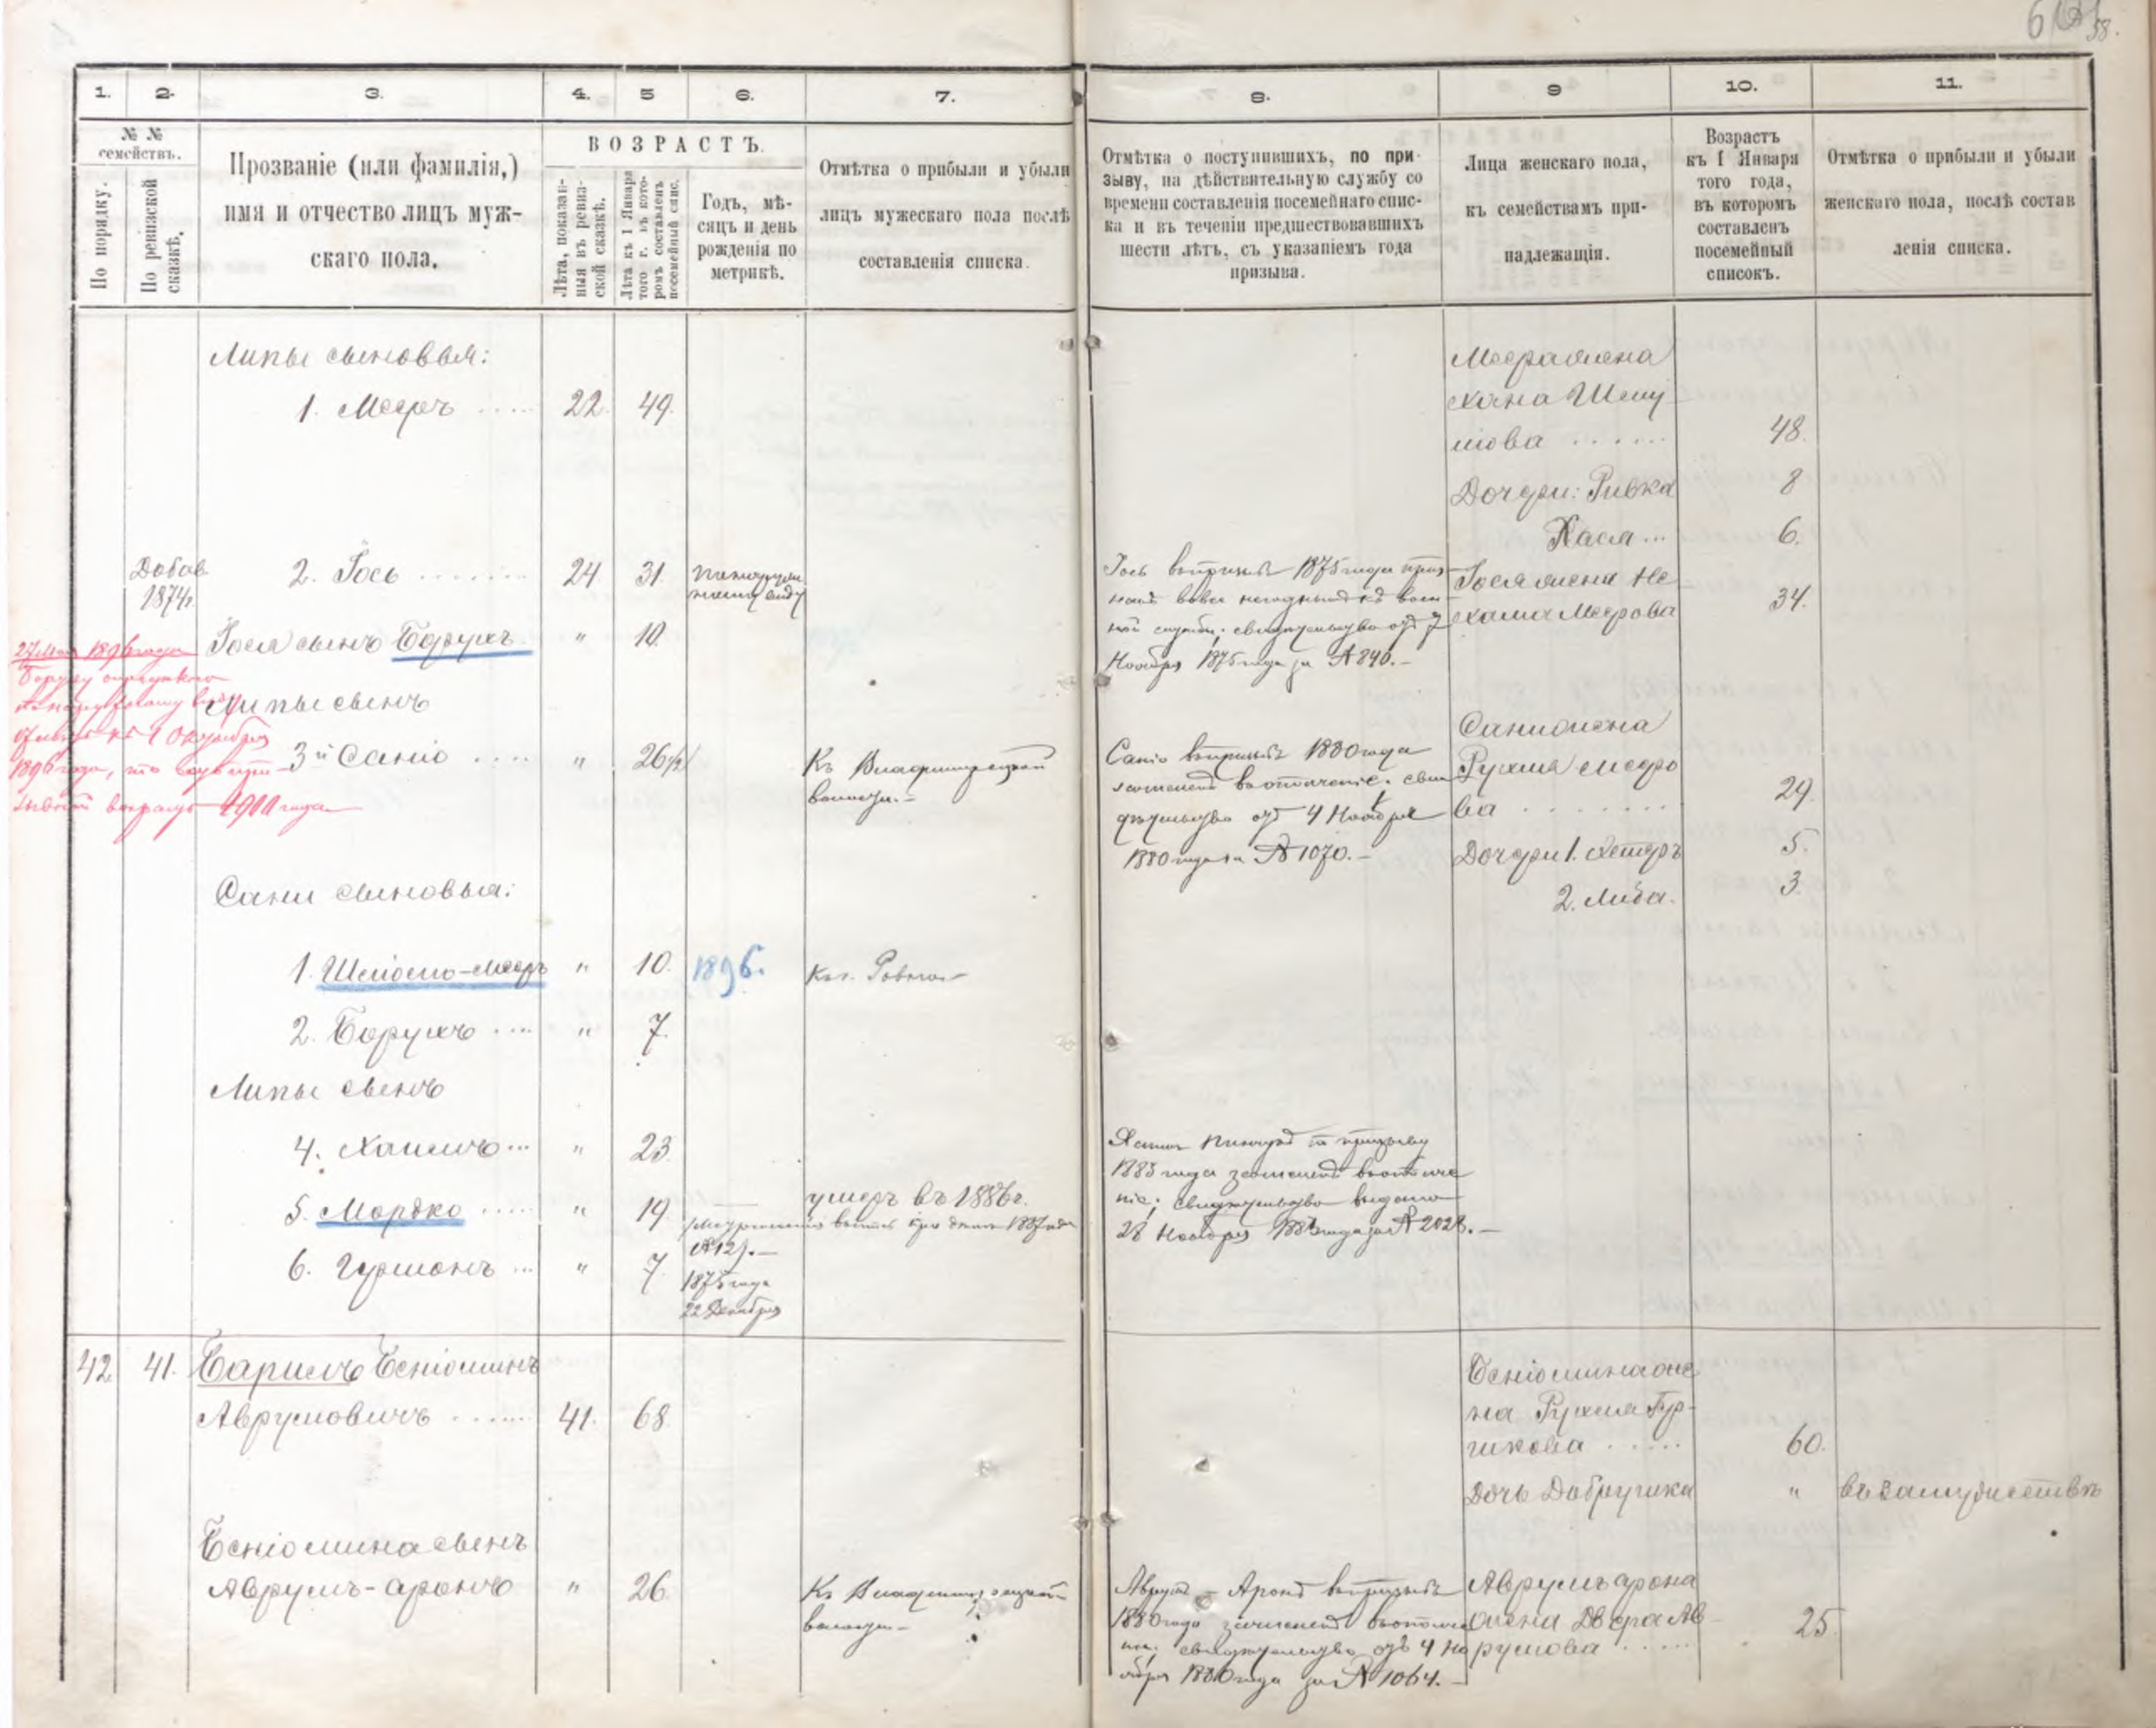 58.
1.
2.
3.
4.
5
6.
7.
8.
9
10.
11.
№ №
семействъ.
По порядку.
По ревизской
сказкѣ.
Прозваніе (или фамилія,)
имя и отчество лицъ муж-
скаго пола.
ВОЗРАСТЪ.
Лѣта, показан-
ныя въ ревиз-
ской сказкѣ.
Лѣта къ 1 Января
того г. въ кото-
ромъ составленъ
посемейный спис.
Годъ, мѣ-
сяцъ и день
рожденія по
метрикѣ.
Отмѣтка о прибыли и убыли
лицъ мужескаго пола послѣ
составленія списка.
Отмѣтка о поступившихъ, по при-
зыву, на дѣйствительную службу со
времени составленія посемейнаго спис-
ка и въ теченіи предшествовавшихъ
шести лѣтъ, съ указаніемъ года
призыва.
Лица женскаго пола,
къ семействамъ при-
надлежащія.
Возрастъ
къ 1 Января
того года,
въ которомъ
составленъ
посемейный
списокъ.
Отмѣтка о прибыли и убыли
женскаго пола, послѣ состав
ленія списка.
Липы сыновья:
1. Мееръ 22. 49.
Меера жена
Хана Шму
лова 48.
Дочери: Ривка 8
Хася 6.
Добав.
1874г.
2. Іось 24 31.
Іось въ призывъ 1875 года приз
нанъ вовсе негоднымъ къ воен
ной службѣ; свидетельство отъ 7
Ноября 1875 года за № 840.
Іося жена Не
хама Меерова 34.
Іося сынъ Борухъ " 10.
27 Мая 1896 года
Боруху определено
по наружному виду
къ 1 Октября
1896 года, то
1900 года
Липы сынъ
3й Саніо " 26
Къ Владимирецкой
волости.
Саніо въ призывъ 1880 года
зачисленъ въ ополченіе. сви
детельство отъ 4 Ноября
1880 года за № 1070.
Сани жена
Рухля Мееро
ва 29.
Дочери 1. Хетръ 5.
2. Либа. 3.
Сани сыновья:
1. Шліомо-Мееръ " 10. 1896. Къ г. Ровно
2. Борухъ " 7.
Липы сынъ
4. Хаимъ " 23.
Хаимъ по призыву
1883 года зачисленъ въ ополче
ніе; свидетельство выдано
28 Ноября 1883 года за № 2028.
5. Мордко " 19 умеръ въ 1886г.
1887 года
№ 12).
6. Гершонъ " 7. 1875 года
22 Декабря
42. 41. Барилъ Беніоминъ
Аврумовичъ 41. 68.
Беніомина же
на Рухля Гур-
шкова 60.
Дочь Добрушка " въ замужествѣ
Беніомина сынъ
Аврумъ-Аронъ " 26.
Къ Владимирецкой
волости
Аврумъ-Аронъ въ призывъ
1880 года зачисленъ въ ополче
ніе; свидетельство отъ 4 Но
ября 1880 года за № 1064.
Аврумъ Арона
жена Двера Ав
румова 25.